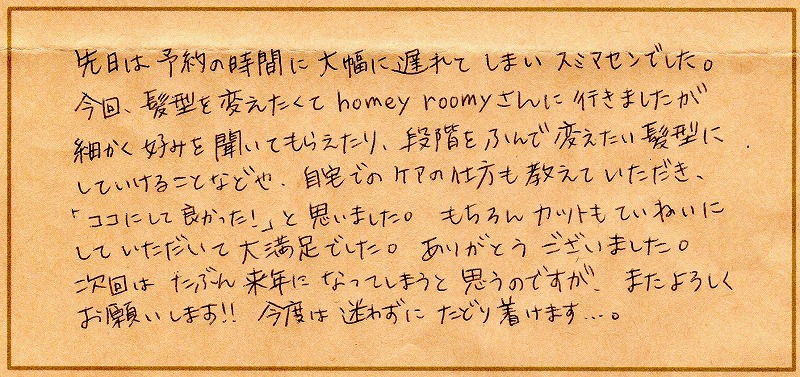 先日は予約の時間に大幅に遅れてしまいスミマセンでした。
今回、髪型を変えたくてhomey roomyさんに行きましたが
細かく好みを聞いてもらえたり、段階をふんで変えたい髪型に
していけることなどや、自宅でのケアの仕方も教えていただき、
「ココにして良かった!」と思いました。もちろんカットもていねいに
していただいて大満足でした。ありがとうございました。
次回はたぶん来年になってしまうと思うのですが、またよろしく
お願いします!!今度は迷わずにたどり着けます…。